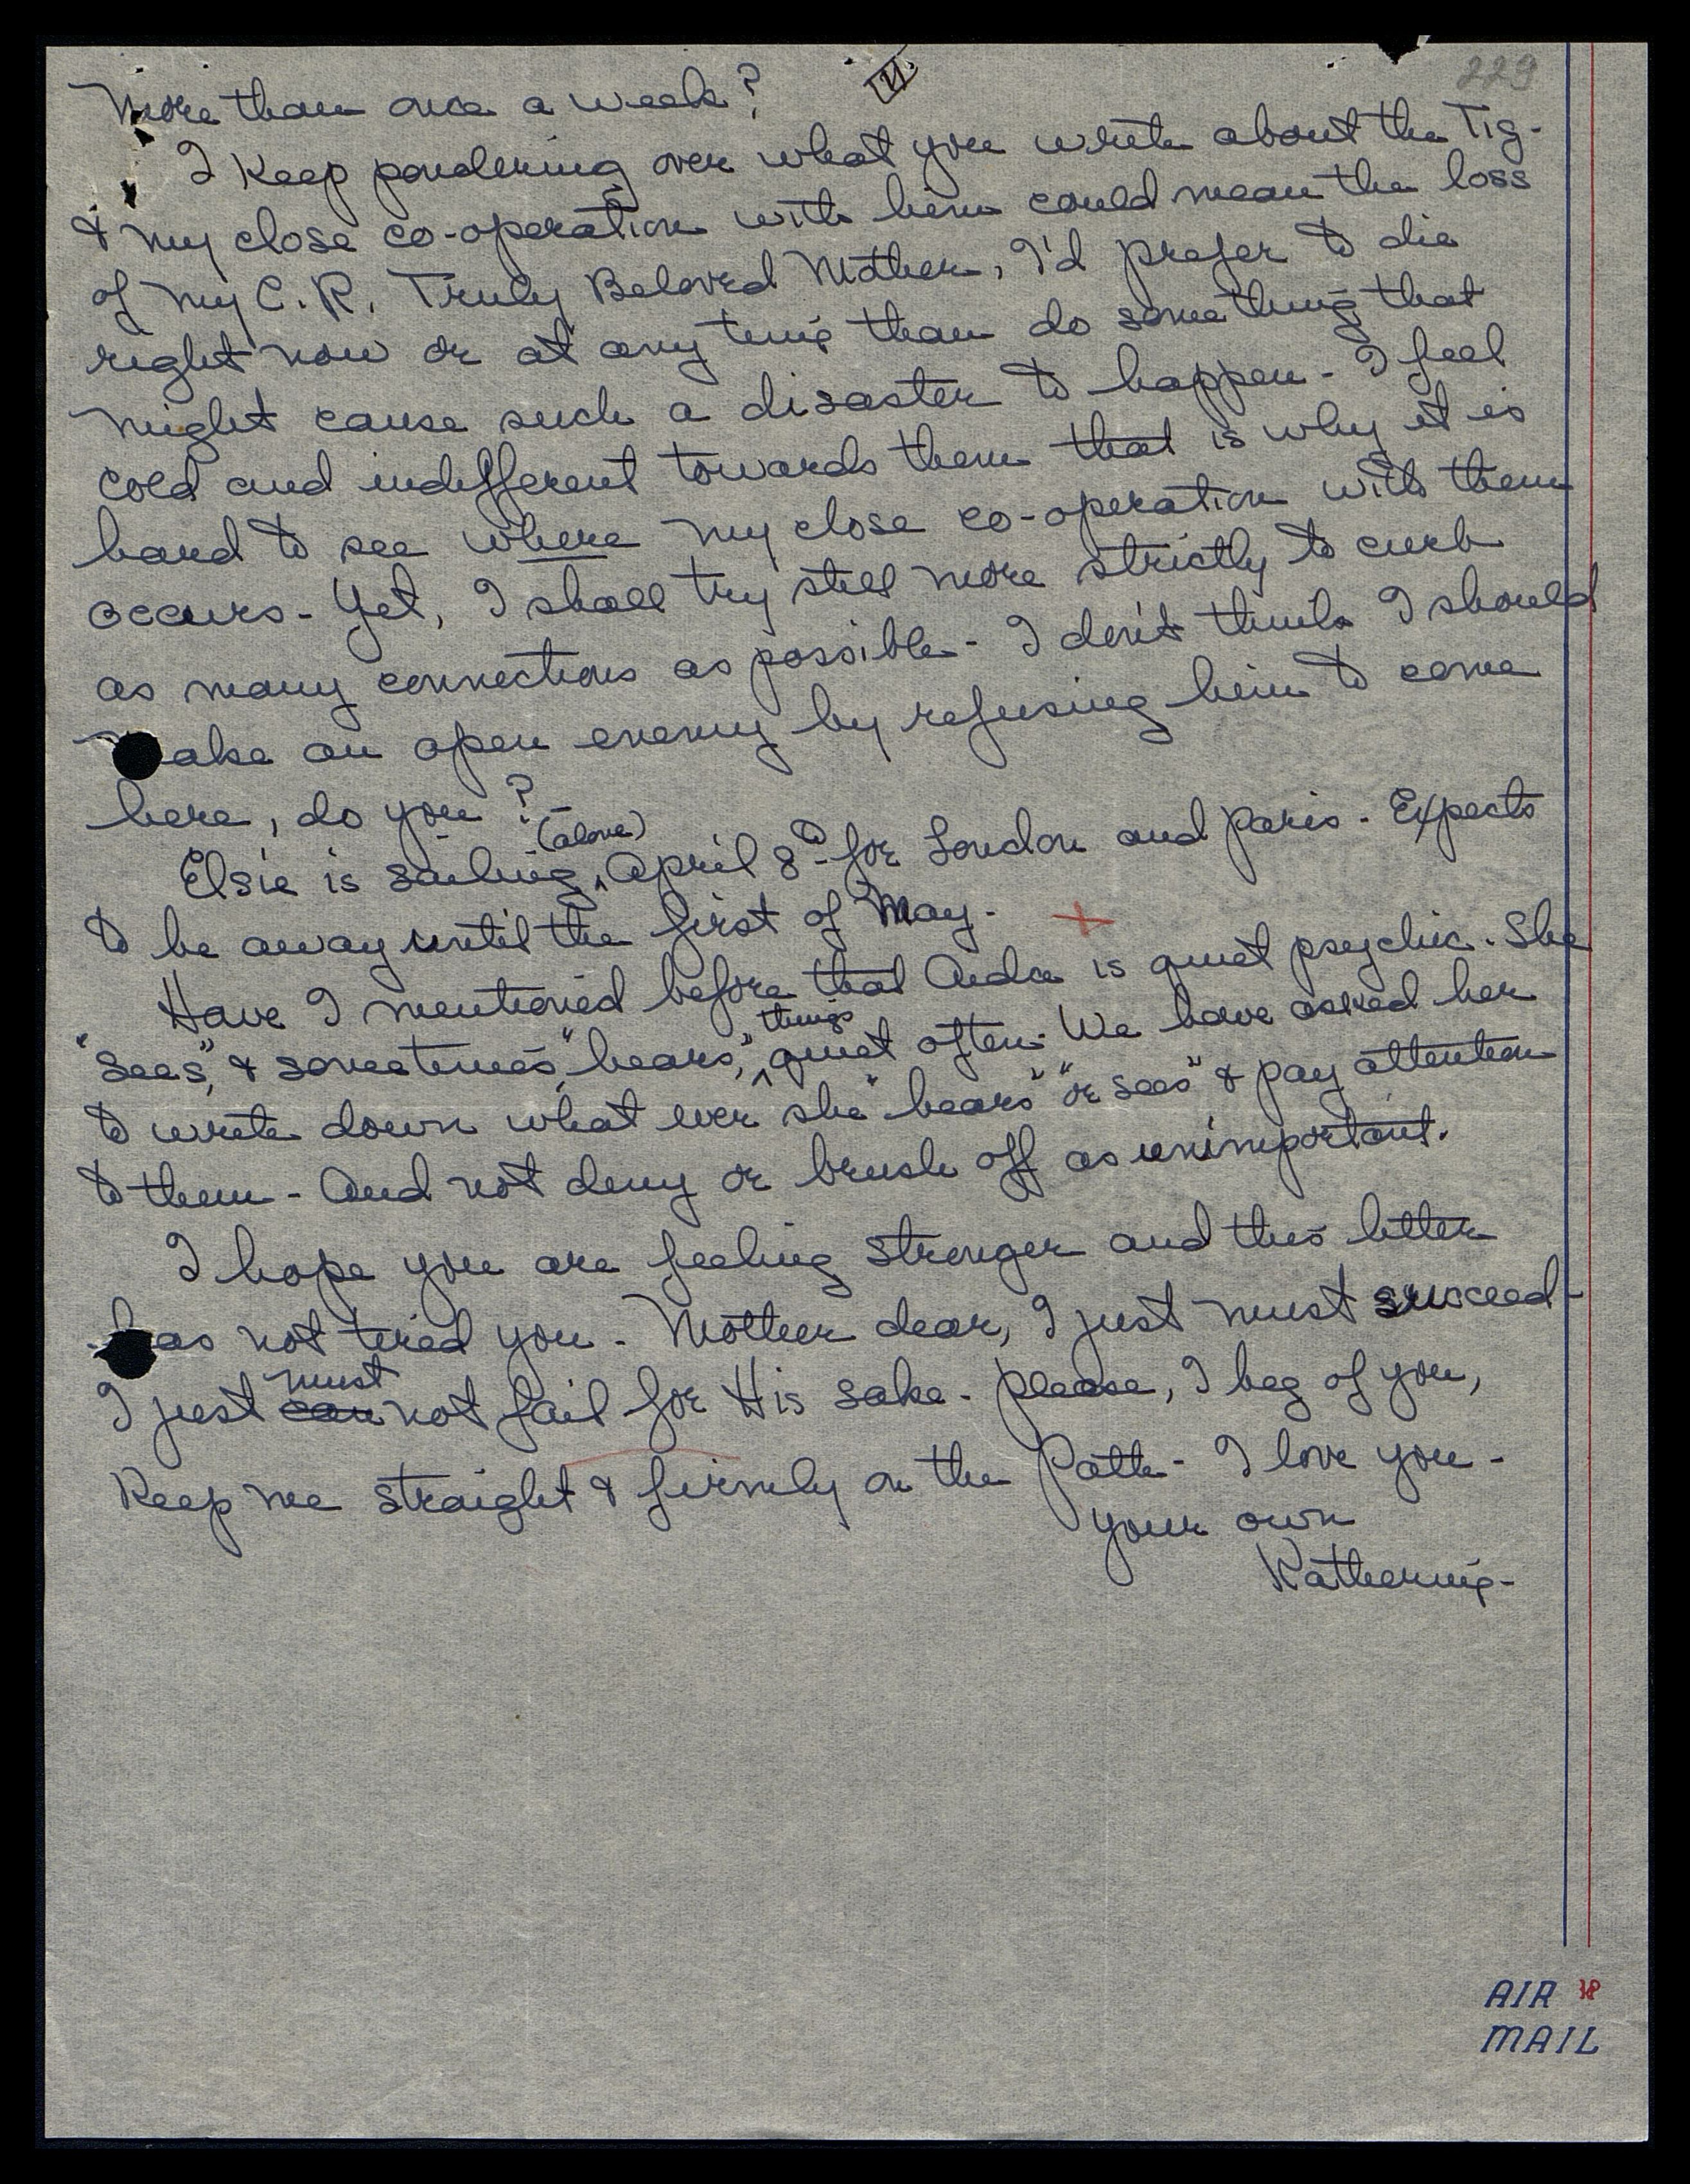 VI.
229
More than once a week?
I keep pondering over what you write about the Tig-
& my close co-operation with him could mean the loss
of my C. R. Truly Beloved Mother, I'd prefer to die
right now or at any time than do something that
might cause such a disaster to happen - I feel
cold and indifferent towards them that is why it is
hard to see where my close co-operation with them
occurs - Yet, I shall try still more strictly to curb
as many connections as possible - I don't think I should
ake an open enemy by refusing him to come
here, do you?
Elsie is sailing (alone) April 8th for London and Paris - Expects
to be away until the first of May -
Have I mentioned before that Auda is quiet psychic. She
"sees", & sometimes "hears", things quiet often. We have asked her
to write down what ever she "hears" or "sees" & pay attention
to them - And not deny or brush off as unimportant.
I hope you are feeling stronger and this letter
has not tired you - Mother dear, I just must succeed -
I just can must not fail for His sake - please, I beg of you,
Keep me straight & firmly on the Path - I love you -
your own
Katherine -
AIR
MAIL